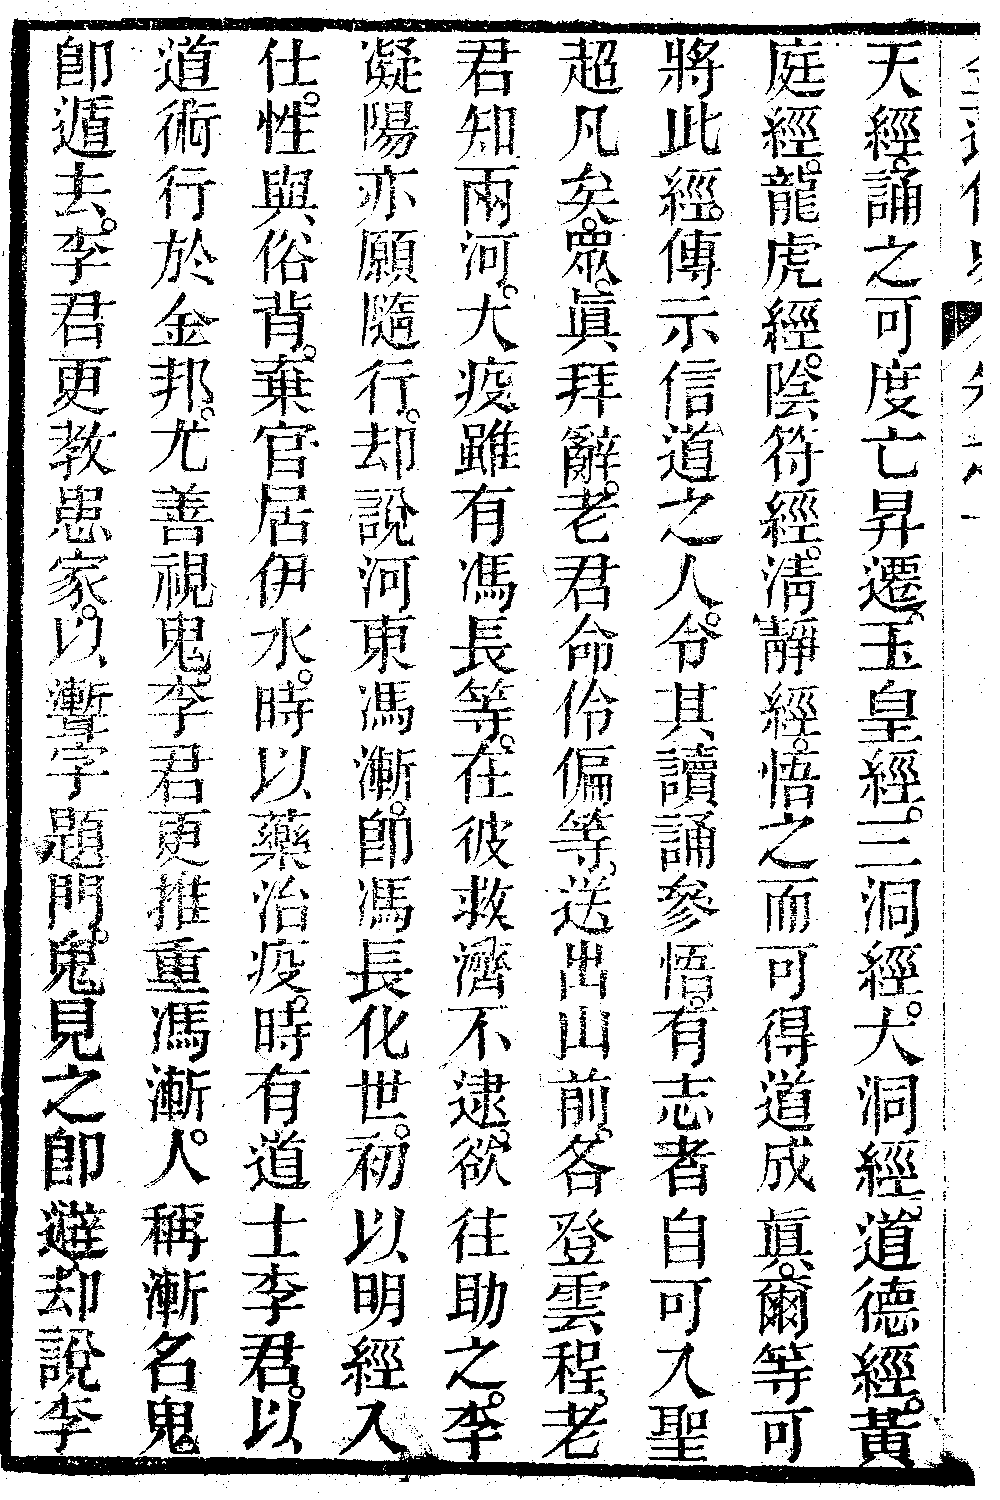 天經。誦之可度亡昇遷。玉皇經。三洞經。大洞經。道德經。黃
庭經。龍虎經。陰符經。淸靜經。悟之而可得道成眞。爾等可
將此經。傳示信道之人。令其讀誦參悟。有志者自可入聖
超凡矣。眾。眞拜辭。老君命伶偏等。送出山前。各登雲程。老
君知兩河。大疫。雖有馮長等。在彼救濟不逮。欲往助之。李
凝陽亦願隨行。却說河東馮漸。卽馮長化世。初以明經入
仕。性與俗背。棄官居伊水。時以藥治疫。時有道士李君。以
道術行於金邦。尤善視鬼。李君更推重馮漸。人稱漸名鬼。
卽遁去。李君更教患家。以聻字題門。鬼見之卽避。却說李